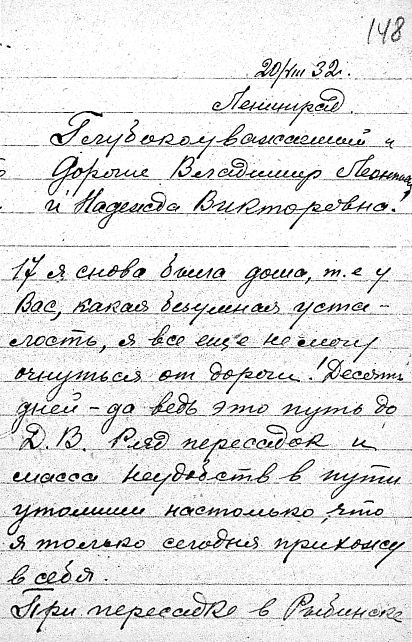 148
20/VIII 32.
Ленинград.
Глубокоуважаемый и
Дорогие Владимир Леонтьевич
и Надежда Викторовна!
17 я снова была дома, т.е у
Вас, какая безумная уста-
лость, я все еще не могу
очнуться от дороги! Десять
дней - да ведь это путь до
Д.В. Ряд пересадок и
масса неудобств в пути
утомили настолько, что
я только сегодня прихожу
в себя.
При пересадке в Рыбинске